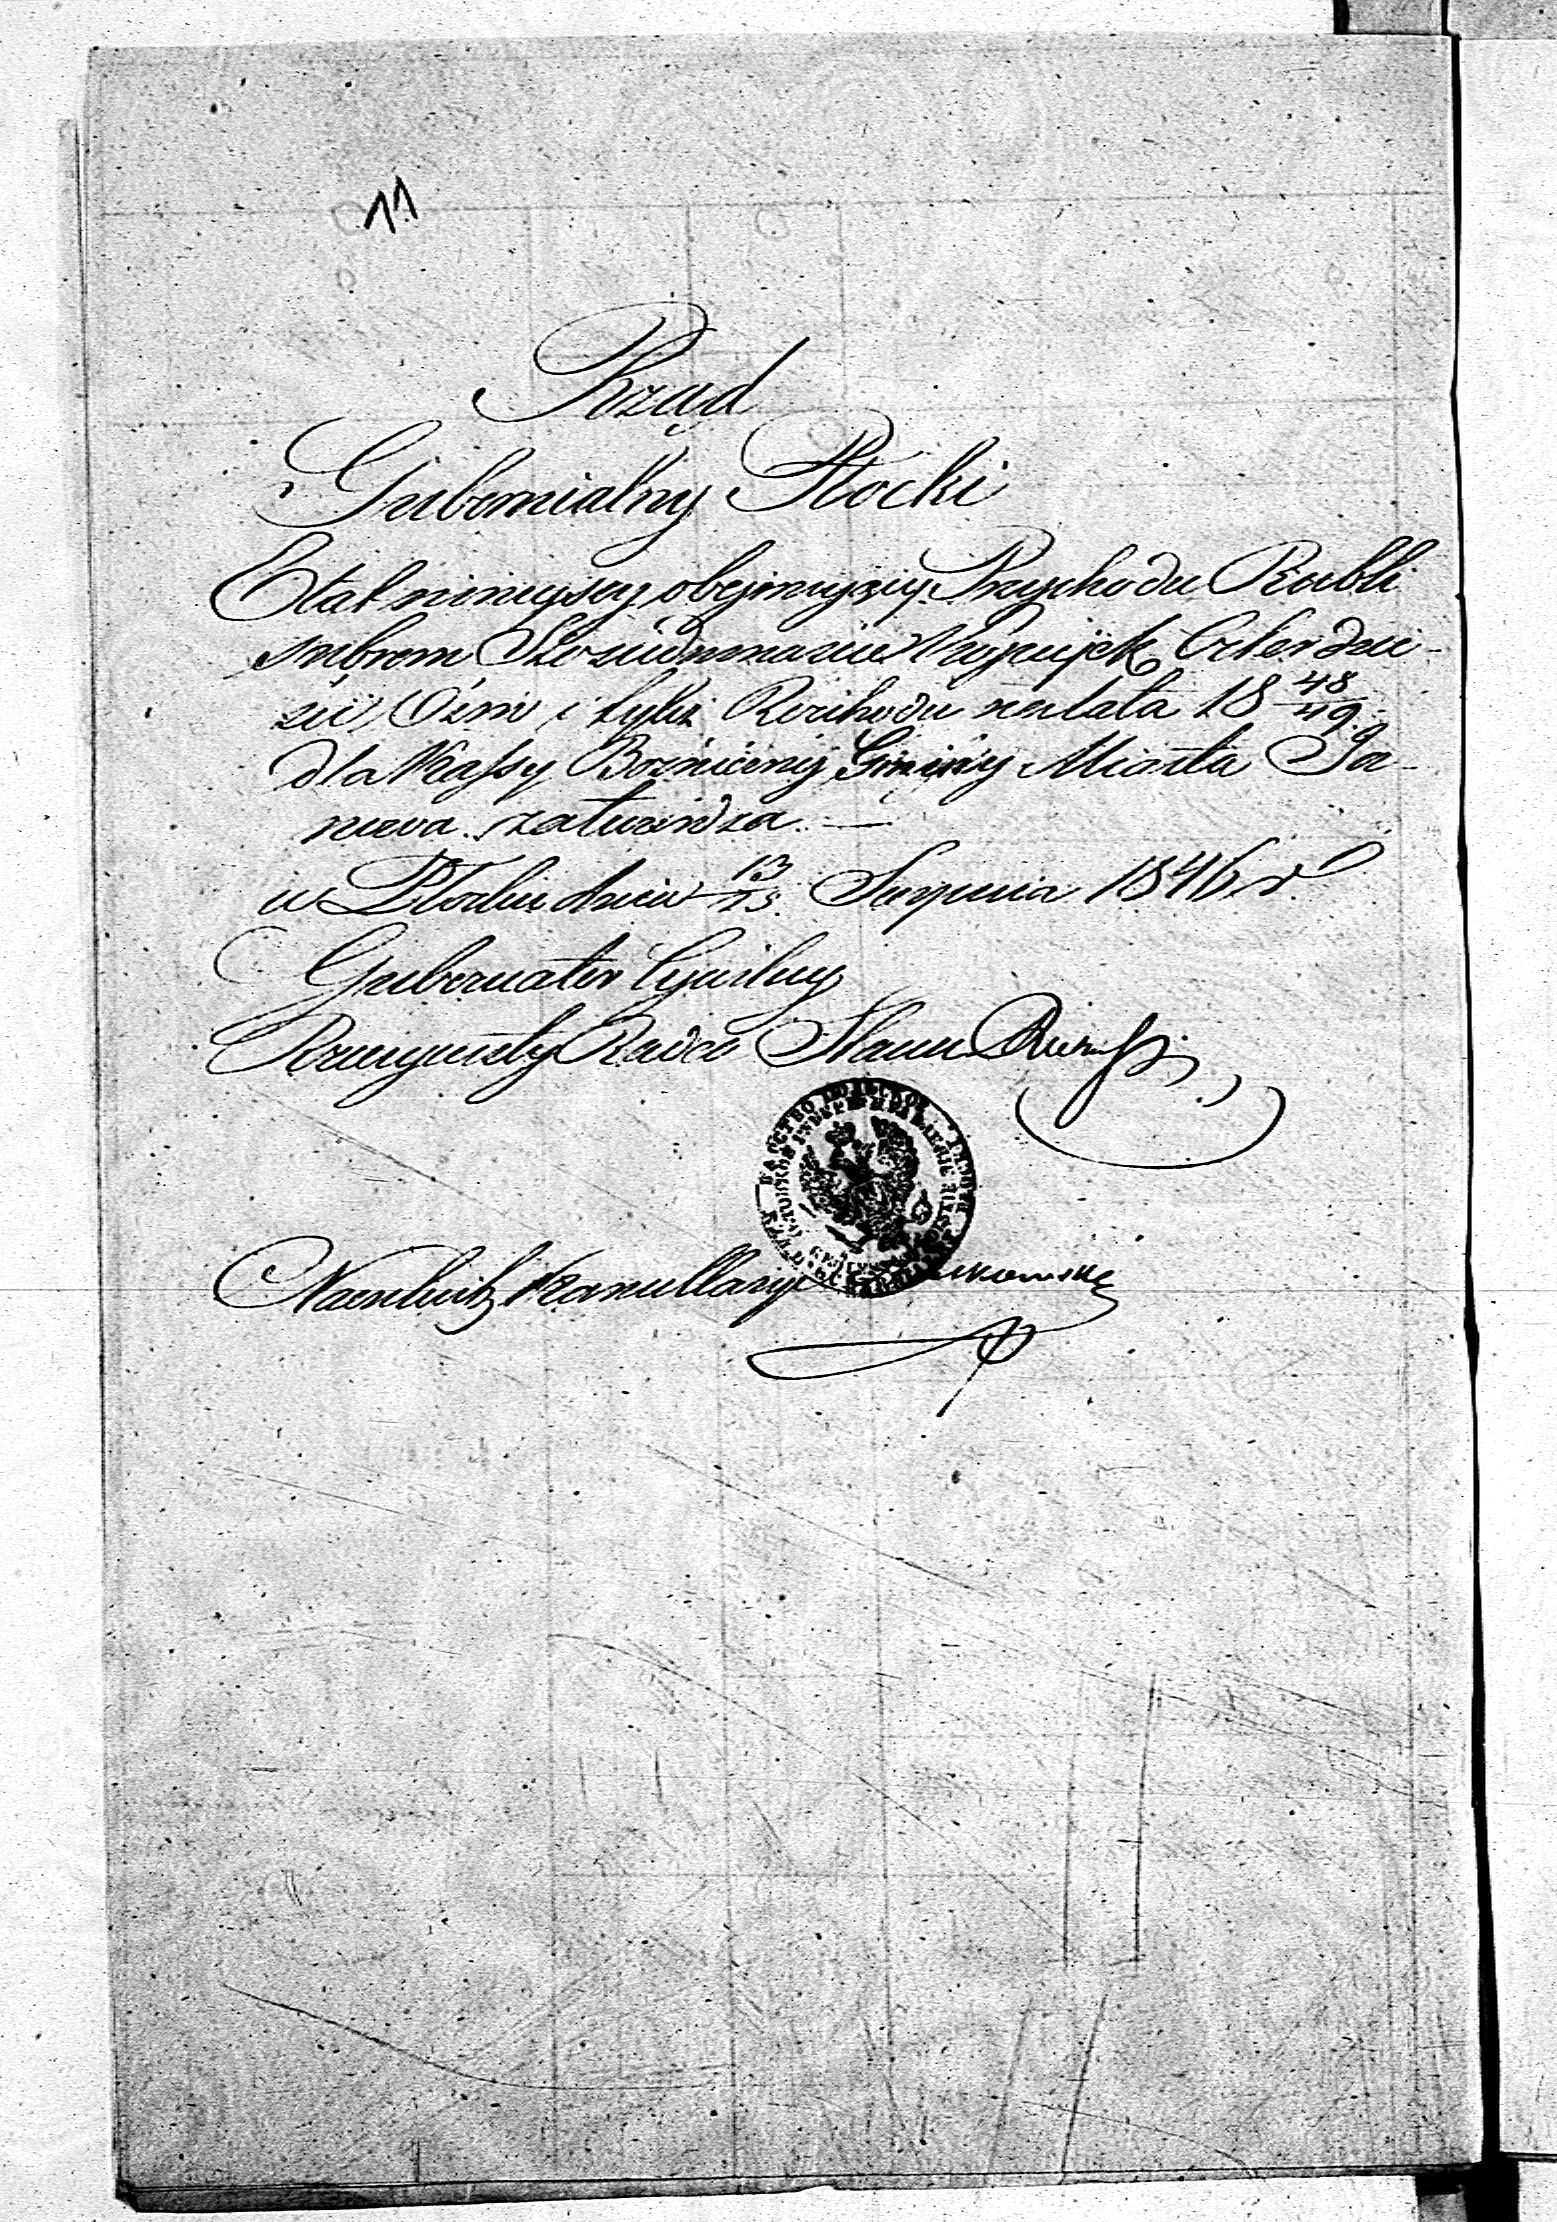 11
Rząd
Gubernialny Płocki
Etat ninieyszy obejmujący Przychodu Rubli
srebrem Sto siedmnaście Kopiejek Czterdzie-
ści Ośm i tyleż Rozchodu na lata 18 48/49
dla Kassy Bożniczej Gminy Miasta Ja-
nowa zatwierdza. —
w Płocku dnia 13/25 Sierpnia 1846 r
Gubernator Cywilny
Rzeczywisty Radca Stanu
Naczelnik Kancellaryi